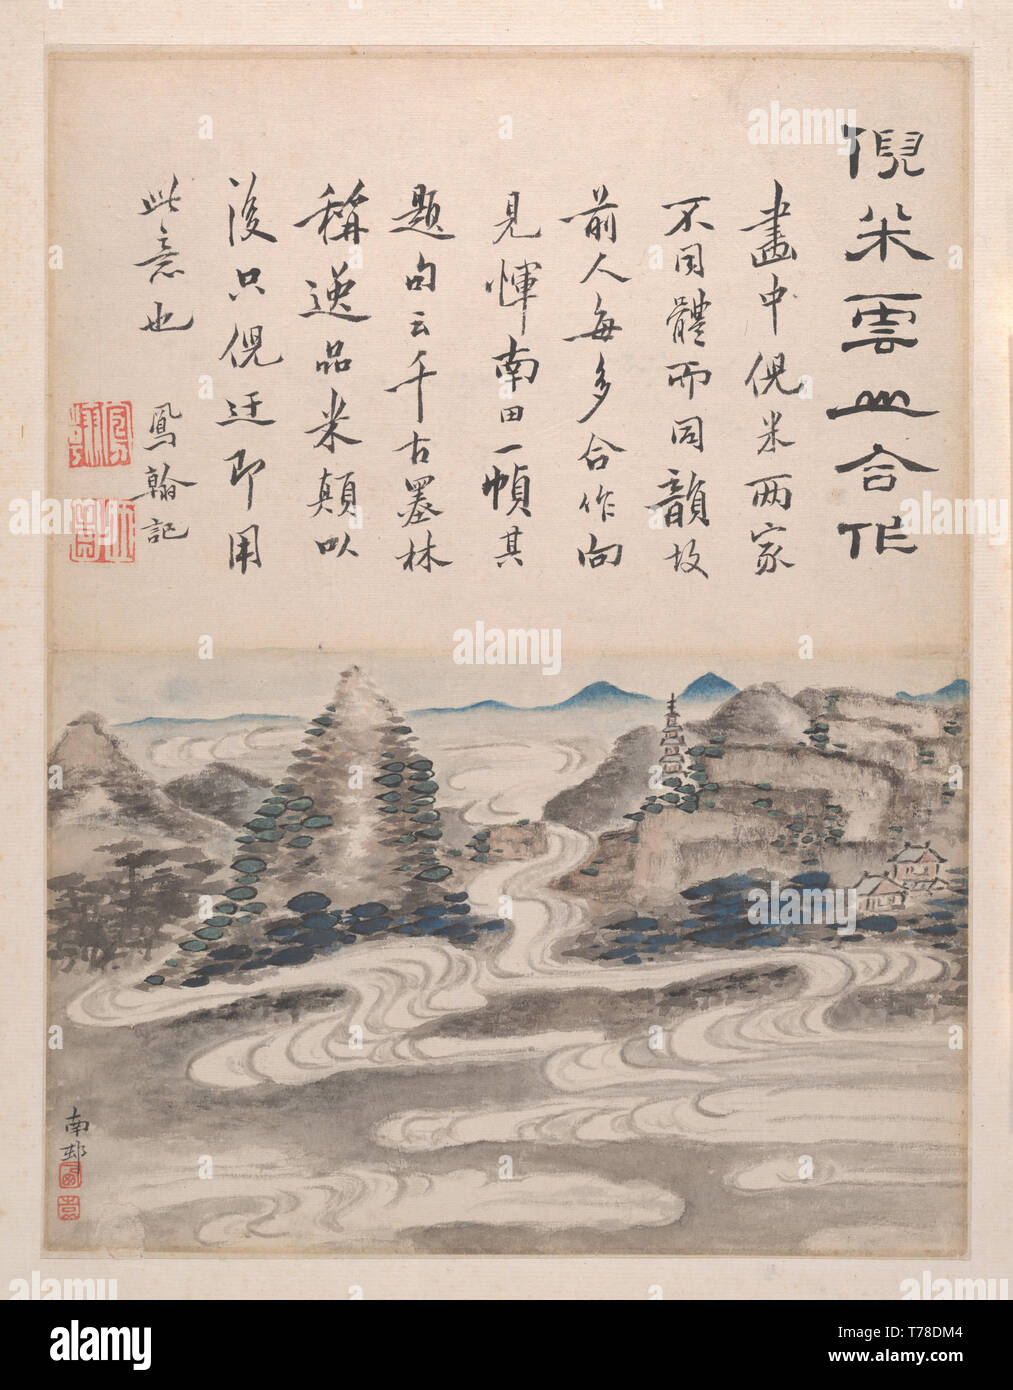 倪米雲山合作
畫中倪米两家
不同體而同韻故
前人每多合作向
見惲南田一幀其
題句云千古墨林
稱逸品米顛以
後只倪迂即用
此意也
鳳翰記
南邨
alamy
alamy
Image ID: T78DM4
www.alamy.com